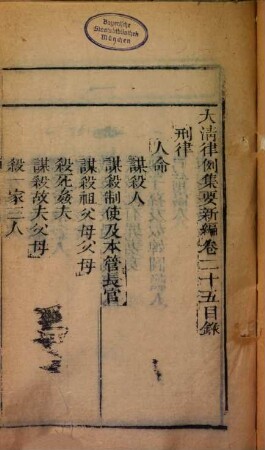 Bayerische
Staatsbibliothek
München
大清律例集要新編卷二十五目錄
刑律
人命
謀殺人
謀殺制使及本管長官
謀殺祖父母父母
殺死姦夫
謀殺故夫父母
殺一家三人